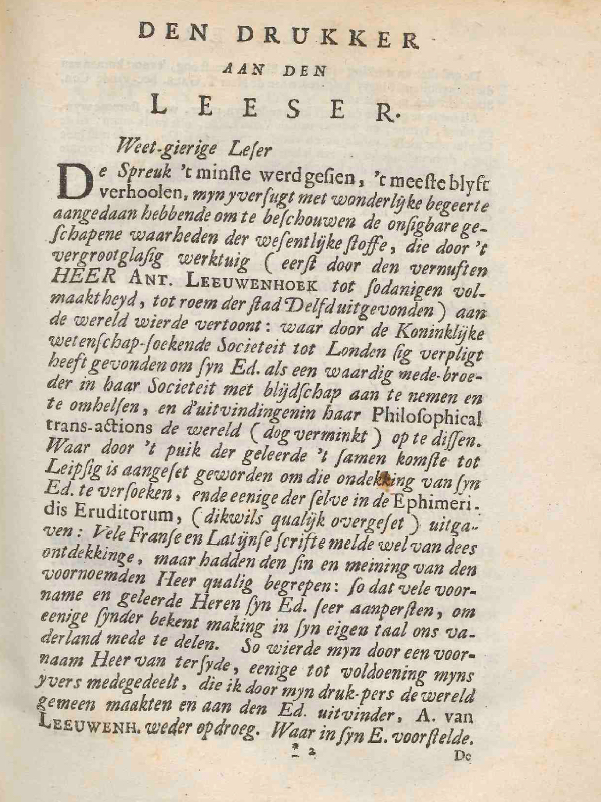 DEN DRUKKER
AAN DEN
LEESER.
Weet-gierige Leſer
De Spreuk 't minſte werd geſien, 't meeſte blyft
verhoolen, myn yver ſugt met wonderlyke begeerte
aangedaan hebbende om te beſchouwen de onſigbare ge-
ſchapene waarheden der weſentlijke ſtoffe, die door 't
vergrootglaſig werktuig (eerſt door den vernuften
HEER ANT. LEEUWENHOEK tot ſodanigen vol-
maaktheyd, tot roem der ſtad Delfd uitgevonden) aan
de wereld wierde vertoont: waar door de Koninklijke
wetenſchap-ſoekende Societeit tot Londen ſig verpligt
heeft gevonden om ſyn Ed. als een waardig mede-broe-
der in haar Societeit met blijdſchap aan te nemen en
te omhelſen, en d'uitvindingen in haar Philoſophical
trans-actions de wereld (dog verminkt) op te diſſen.
Waar door 't puik der geleerde 't ſamen komſte tot
Leipſig is aangeſet geworden om die ondekking van ſyn
Ed. te verſoeken, ende eenige der ſelve in de Ephimeri-
dis Eruditorum, (dikwils qualijk overgeſet) uitga-
ven: Vele Franſe en Latijnſe ſcrifte melde wel van dees
ontdekkinge, maar hadden den ſin en meining van den
voornoemden Heer qualig begrepen: ſo dat vele voor-
name en geleerde Heren ſyn Ed. ſeer aanperſten, om
eenige ſynder bekent making in ſyn eigen taal ons va-
derland mede te delen. So wierde myn door een voor-
naam Heer van terſyde, eenige tot voldoening myns
yvers medegedeelt, die ik door myn druk-pers de wereld
gemeen maakten en aan den Ed. uitvinder, A. van
LEEUWENH. weder opdroeg. Waar in ſyn E. voorſtelde.
* 2 De